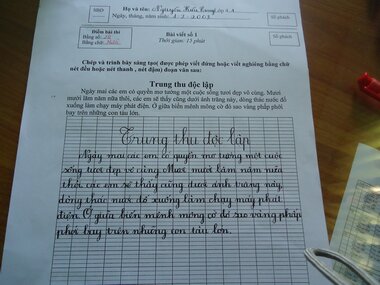 SBD
Họ và tên: Nguyễn Hữu
Ngày, tháng, năm sinh: 1.2.2003
Số phách
Điểm bài thi
Bằng số: 10
Bằng chữ: Mười
Bài viết số 1
Thời gian: 15 phút
Số phách
Chép và trình bày sáng tạo( được phép viết đứng hoặc viết nghiêng bằng chữ
nét đều hoặc nét thanh , nét đậm) đoạn văn sau:
Trung thu độc lập
Ngày mai các em có quyền mơ tưởng một cuộc sống tươi đẹp vô cùng. Mươi
mười lăm năm nữa thôi, các em sẽ thấy cũng dưới ánh trăng này, dòng thác nước đổ
xuống làm chạy máy phát điện. Ở giữa biển mênh mông cờ đỏ sao vàng phấp phới
bay trên những con tàu lớn.
Trung thu độc lập
Ngày mai các em có quyền mơ tưởng một cuộc
sống tươi đẹp vô cùng. Mươi mười lăm năm nữa
thôi các em sẽ thấy cũng dưới ánh trăng này,
dòng thác nước đổ xuống làm chạy máy phát
điện. Ở giữa biển mênh mông cờ đỏ sao vàng phấp
phới bay trên những con tàu lớn.